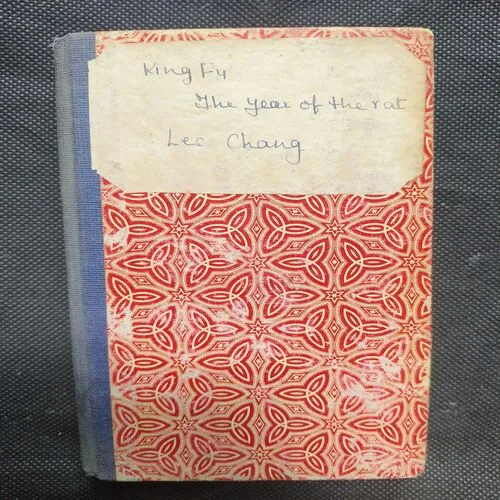 King Fu
The year of the rat
Lee Chang